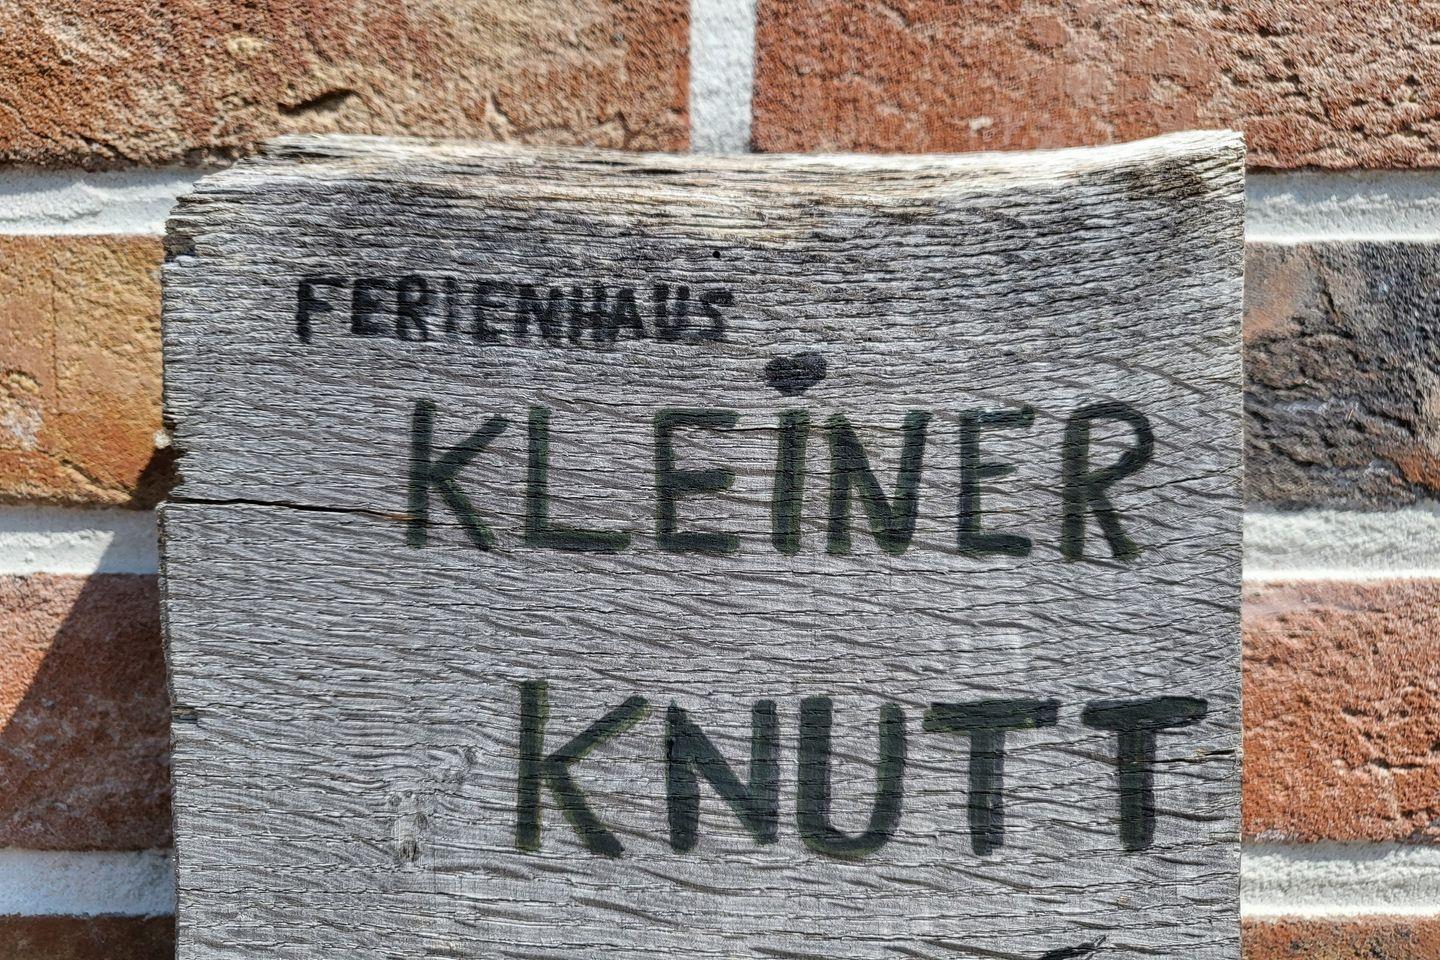 FERIENHAUS
KLEiNER
KNUTT